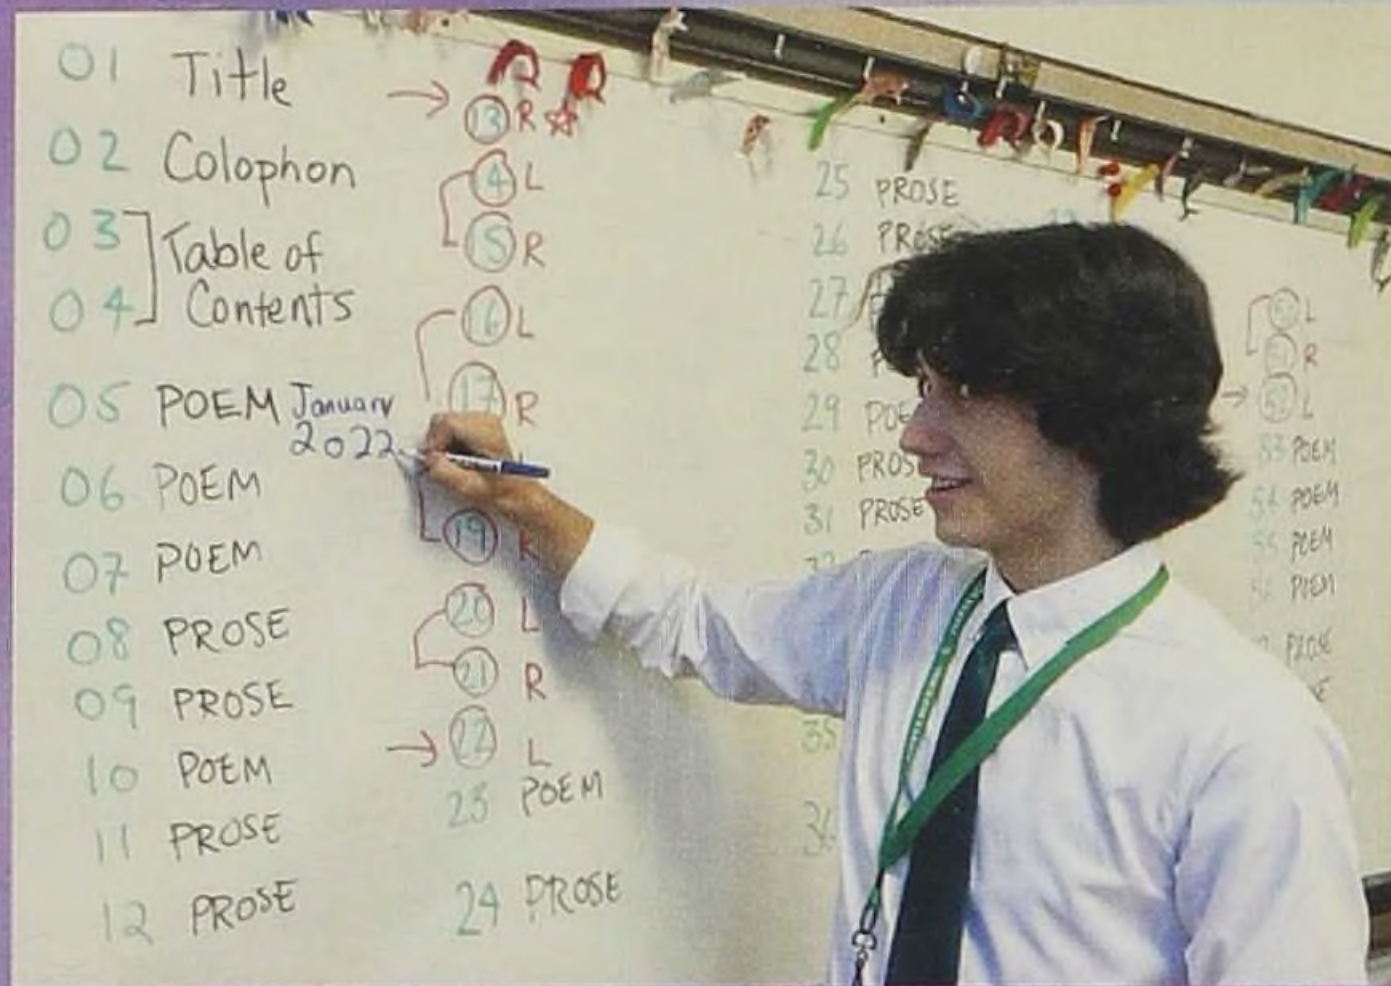 01 Title
02 Colophon
03 Table of
04 Contents
05 POEM January
2022
06 POEM
07 POEM
08 PROSE
09 PROSE
10 POEM
11 PROSE
12 PROSE
13 R
4 L
15 R
16 L
17 R
19 R
20 L
21 R
22 L
23 POEM
24 PROSE
25 PROSE
26 PROSE
27
28
29
30 PROSE
31 PROSE
35
36
L
R
L
53 POEM
54 POEM
55 POEM
POEM
PROSE